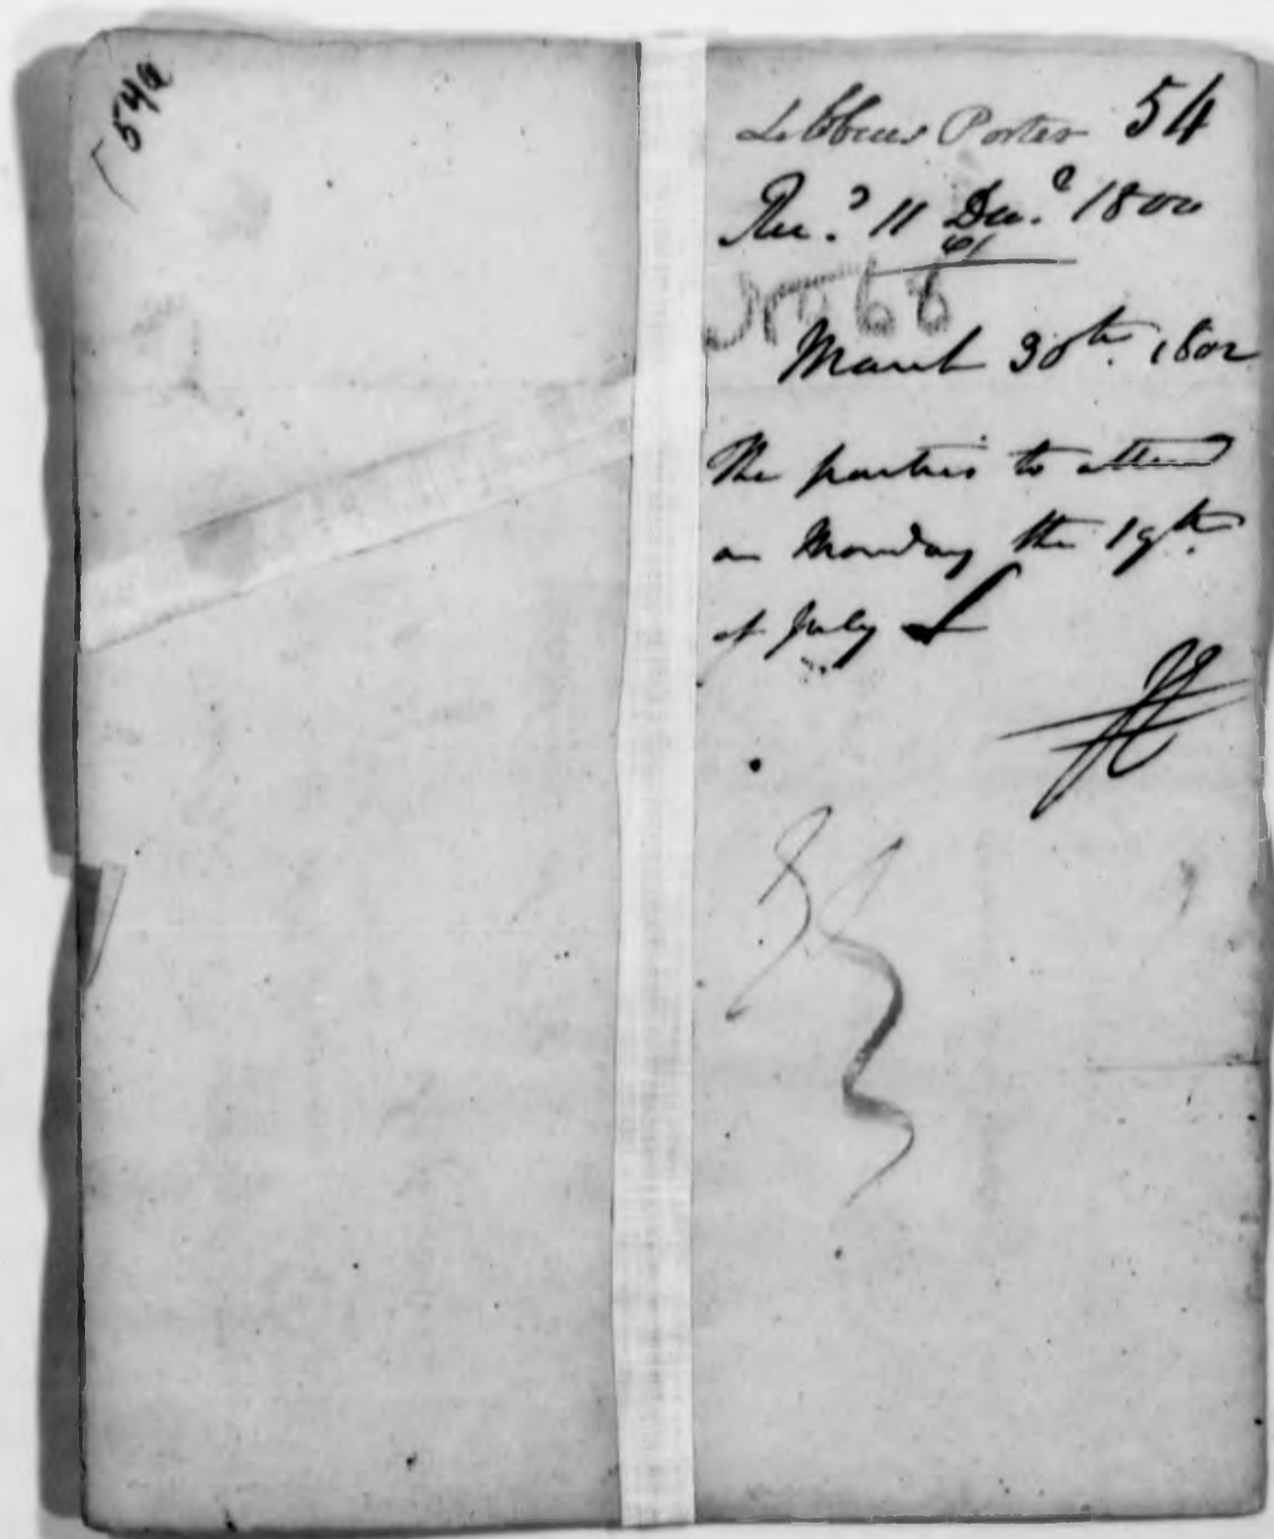 54a
Lebbeus Porter 54
Rec.d 11 Dec.r 1800
61
66
March 30th. 1802
The parties to attend
on Monday the 19th.
of July